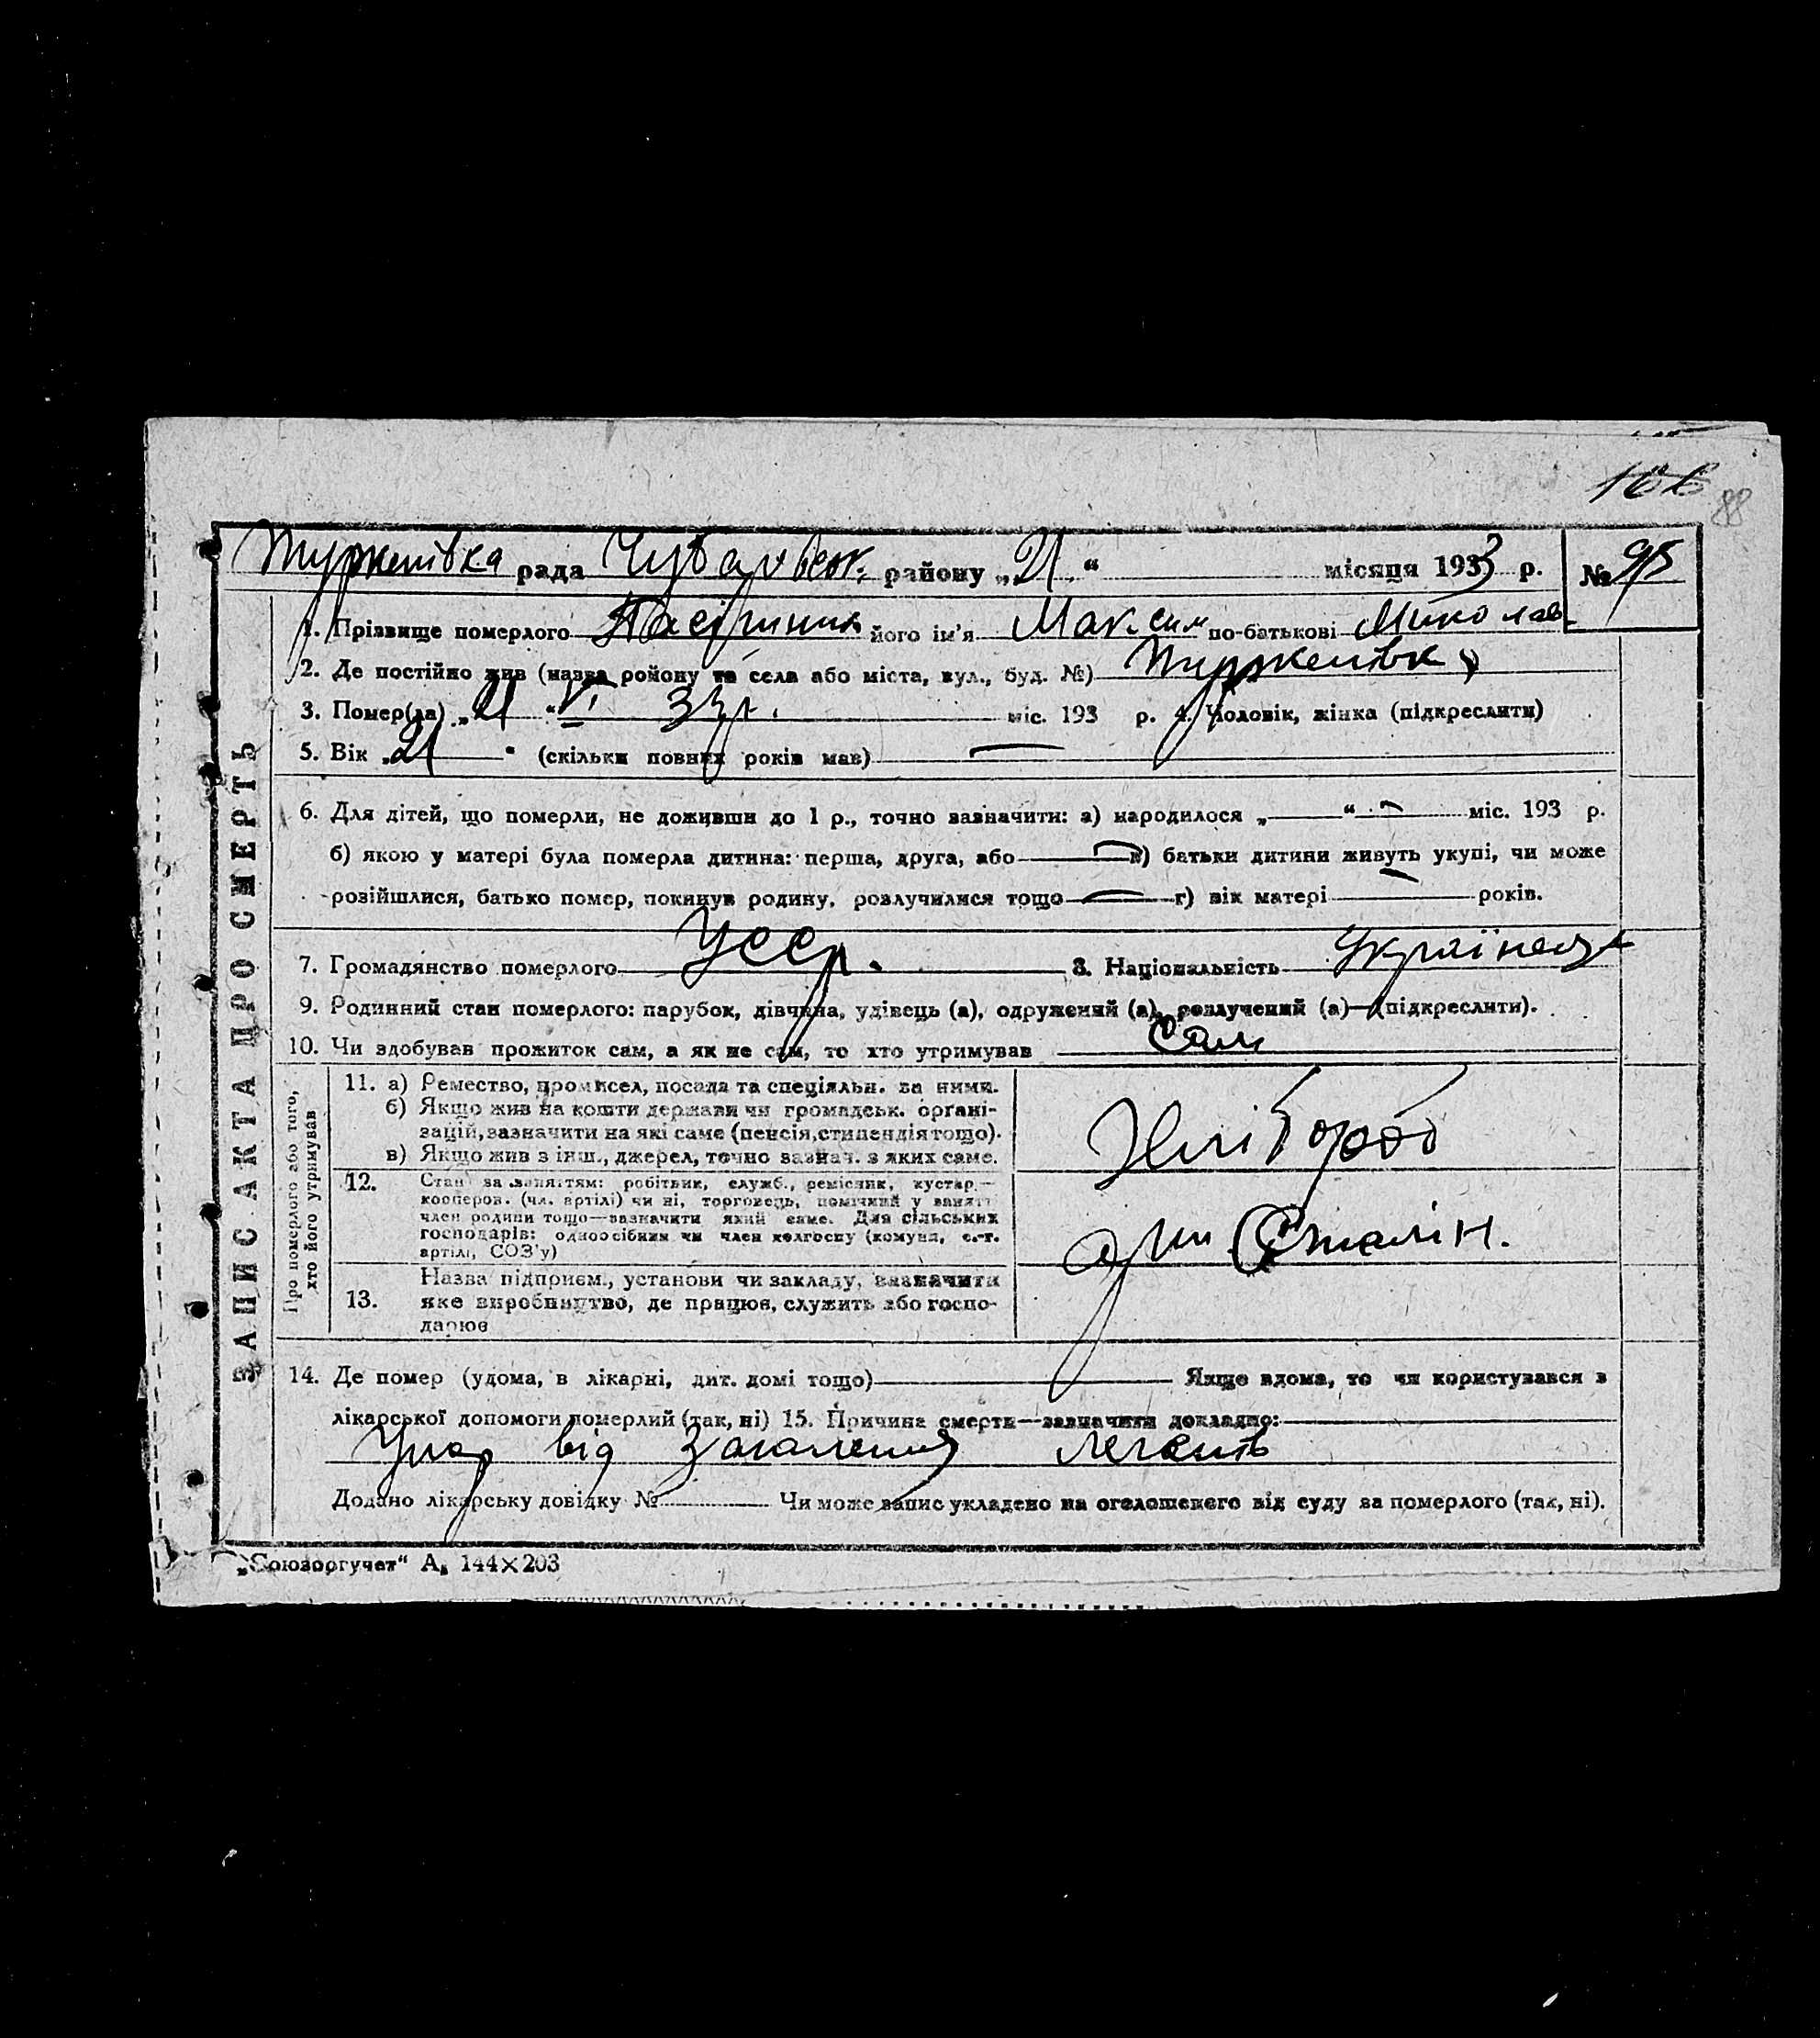 88
Туркенівка рада Чубарівськ. району „21.“ місяця 1933 р. № 95
1. Прізвище померлого його ім'я Максим по-батькові Миколав
2. Де постійно жив (назва району та села або міста, вул., буд. №) Туркенівка
3. Помер(ла) „21 “ VI 33р. міс. 193 р. 4. Чоловік, жінка (підкреслити)
5. Вік „21 “ (скільки повних років мав) —
6. Для дітей, що померли, не доживши до 1 р., точно зазначити: а) народилося „ “ – міс. 193 р.
б) якою у матері була померла дитина: перша, друга, або — в) батьки дитини живуть укупі, чи може
розійшлися, батько помер, покинув родину, розлучилися тощо — г) вік матері — років.
7. Громадянство померлого Усср. 8. Національність Українець
9. Родинний стан померлого: парубок, дівчина, удівець (а), одружений (а), розлучений (а)—(підкреслити).
10. Чи здобував прожиток сам, а як не сам, то хто утримував Сам
ЗАПИС АКТА ПРО СМЕРТЬ
Про померлого або того, хто його утримував
11. а) Ремество, промисел, посада та спеціяльн. за ними.
б) Якщо жив на кошти держави чи громадськ. органі-
зацій, зазначити на які саме (пенсія, стипендія тощо).
в) Якщо жив з інш., джерел, точно зазнач. з яких саме.
Хлібороб
12. Стан за заняттям: робітник, служб., ремісник, кустар,—
кооперов. (чл. артілі) чи ні, торговець, помічний у занятті
член родини тощо—зазначити який саме. Для сільських
господарів: одноосібник чи член колгоспу (комуни, с.-г.
артілі, СОЗ'у)
арт. Сталін.
13. Назва підприєм., установи чи закладу, зазначити
яке виробництво, де працює, служить або госпо-
дарює
14. Де помер (удома, в лікарні, дит. домі тощо) Якщо вдома, то чи користувався з
лікарської допомоги померлий (так, ні) 15. Причина смерти—зазначити докладно:
Умер від Запалення легень
Додано лікарську довідку № Чи може запис укладено на оголошеного від суду за померлого (так, ні).
„Союзоргучет“ А5 144×203